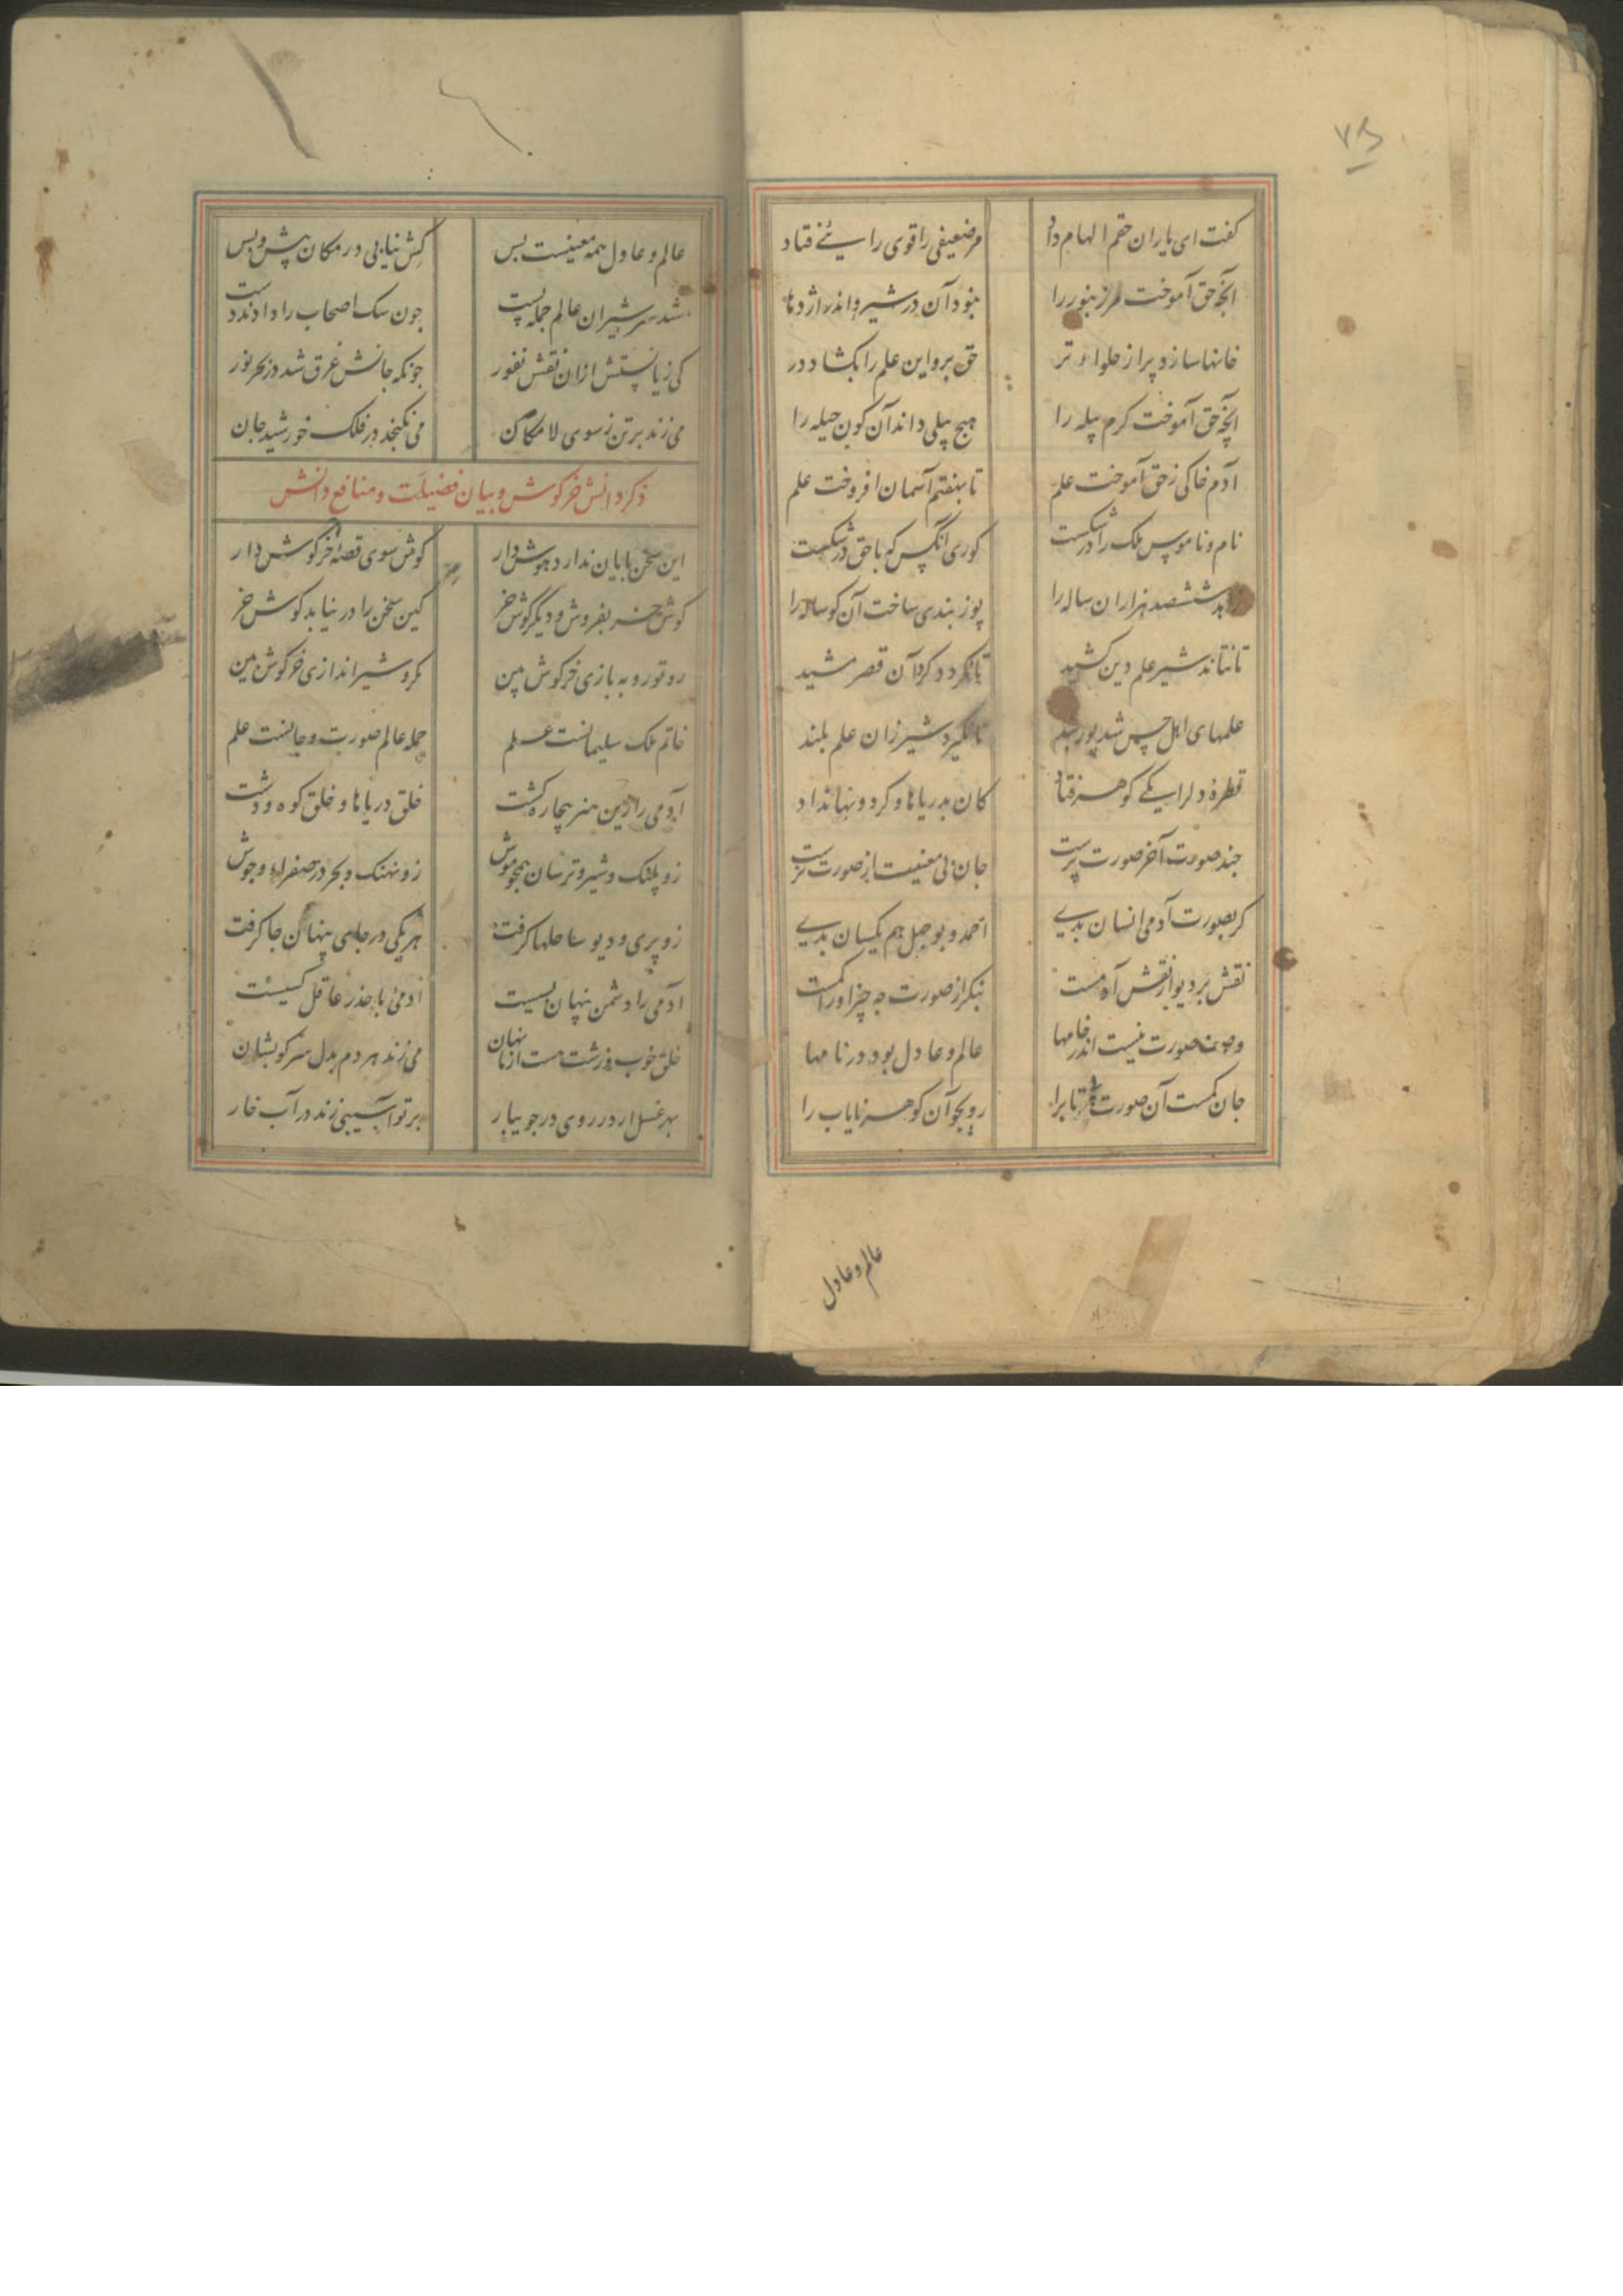 ۷۵
گفت ای یاران حقم الهام داد مر ضعیفی را قوی رایی فتاد
آنچه حق آموخت مر زنبور را نبود آن در شیر و اندر اژدها
خانها سازد پر از حلوای تر حق برو این علم را بکشاد در
آنچه حق آموخت کرم پیله را هیچ پیلی داند آن گون حیله را
آدم خاکی ز حق آموخت علم تا بهفتم آسمان افروخت علم
نام و ناموس ملک را در شکست کوری آنکس که با حق در شکست
زاهد ششصد هزاران ساله را پوزبندی ساخت آن کوساله را
تا نتاند شیر علم دین کشید تا نکردد کرد آن قصر مشید
علمهای اهل حس شد پوزبند تا نکیرد شیر زان علم بلند
قطرهٔ دل را یکی کوهر فتاد کان بدریاها و کردونها نداد
جند صورت آخر صورت پرست جان بی معنیست از صورت نرست
کر بصورت آدمی انسان بدی احمد و بوجهل هم یکسان بدی
نقش بر دیوار نقش آدمست بنکر از صورت جه چیز او را کمست
وصف صورت نیست اندر خامها عالم و عادل بود در نامها
جان کمست آن صورت را رو بجو آن کوهر نایاب را
عالم و عادل
عالم و عادل همه معنیست بس کش نیابی در مکان پیش و پس
شد سر شیران عالم جمله پست جون سک اصحاب را دادند دست
کی زیانستش ازان نقش نفور جونکه جانش غرق شد در بحر نور
می زند بر تن ز سوی لامکان می نکنجد در فلک خورشید جان
ذکر دانش خرکوش و بیان فضیلت و منافع دانش
این سخن پایان ندارد هوش دار کوش سوی قصهٔ خرکوش دار
کوش خر بفروش و دیگر کوش خر کین سخن را در نیابد کوش خر
رو تو روبه بازی خرکوش بین مکر و شیر اندازی خرکوش بین
خاتم ملک سلیمانست علم جمله عالم صورت و جانست علم
آدمی را زین هنر بیچاره کشت خلق دریاها و خلق کوه و دشت
زو پلنک و شیر و ترسان همجو موش زو نهنک و بحر در صفرا و جوش
زو پری و دیو ساحلها کرفت هر یکی در جای پنهان جا کرفت
آدمی را دشمن پنهان بسیست آدمی با حذر عاقل کسیست
خلق خوب و زشت هست از ما نهان می زند هر دم بدل سرکوبشان
بهر غسل ار در روی در جویبار بر تو آسیبی زند در آب خار